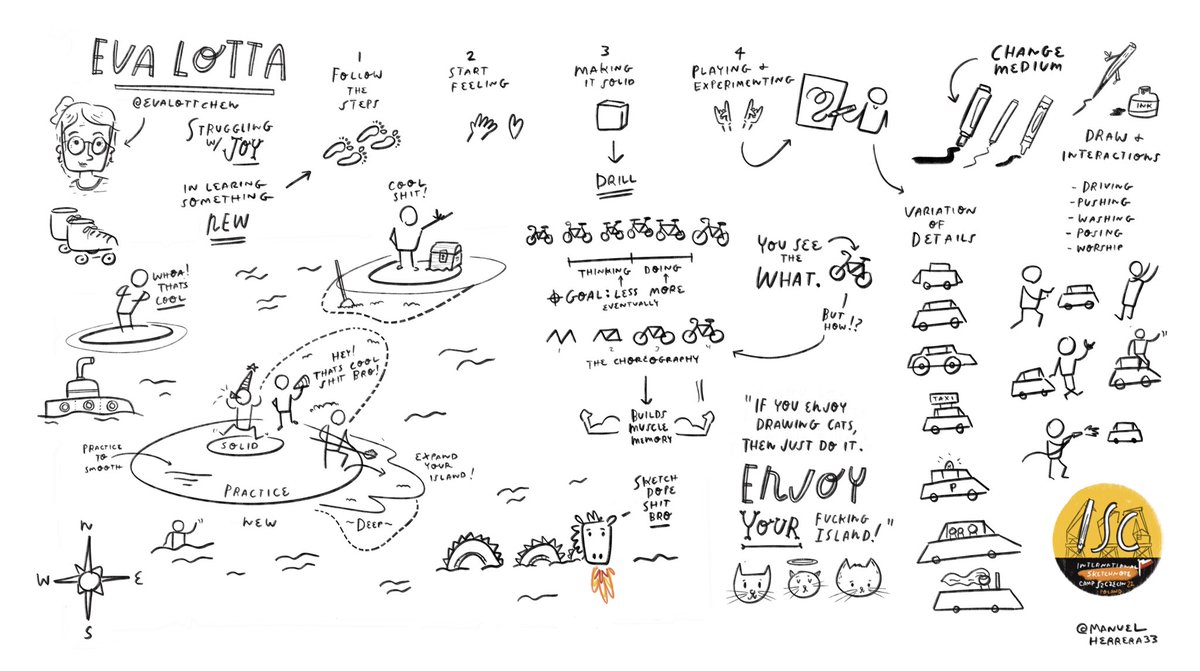 EVA LOTTA
@EVALOTTCHEN
STRUGGLING
W/ JOY
IN LEARING
SOMETHING
NEW
1
FOLLOW
THE
STEPS
2
START
FEELING
3
MAKING
IT SOLID
DRILL
THINKING DOING
GOAL: LESS MORE
EVENTUALLY
1 2 3 4
THE CHOREOGRAPHY
BUILDS
MUSCLE
MEMORY
4
PLAYING &
EXPERIMENTING
YOU SEE
THE
WHAT.
BUT
HOW!?
CHANGE
MEDIUM
INK
DRAW &
INTERACTIONS
- DRIVING
- PUSHING
- WASHING
- POSING
- WORSHIP
VARIATION
OF
DETAILS
TAXI
P
COOL
SHIT!
WHOA!
THATS
COOL
HEY!
THATS COOL
SHIT BRO!
SOLID
PRACTICE
TO
SMOOTH
PRACTICE
NEW
EXPAND
YOUR
ISLAND!
~DEEP~
N
W E
S
SKETCH
DOPE
SHIT
BRO
"IF YOU ENJOY
DRAWING CATS,
THEN JUST DO IT.
ENJOY
YOUR FUCKING
ISLAND!"
ISC
INTERNATIONAL
SKETCHNOTE
CAMP SZCZECIN 22
POLAND
@MANUEL
HERRERA33